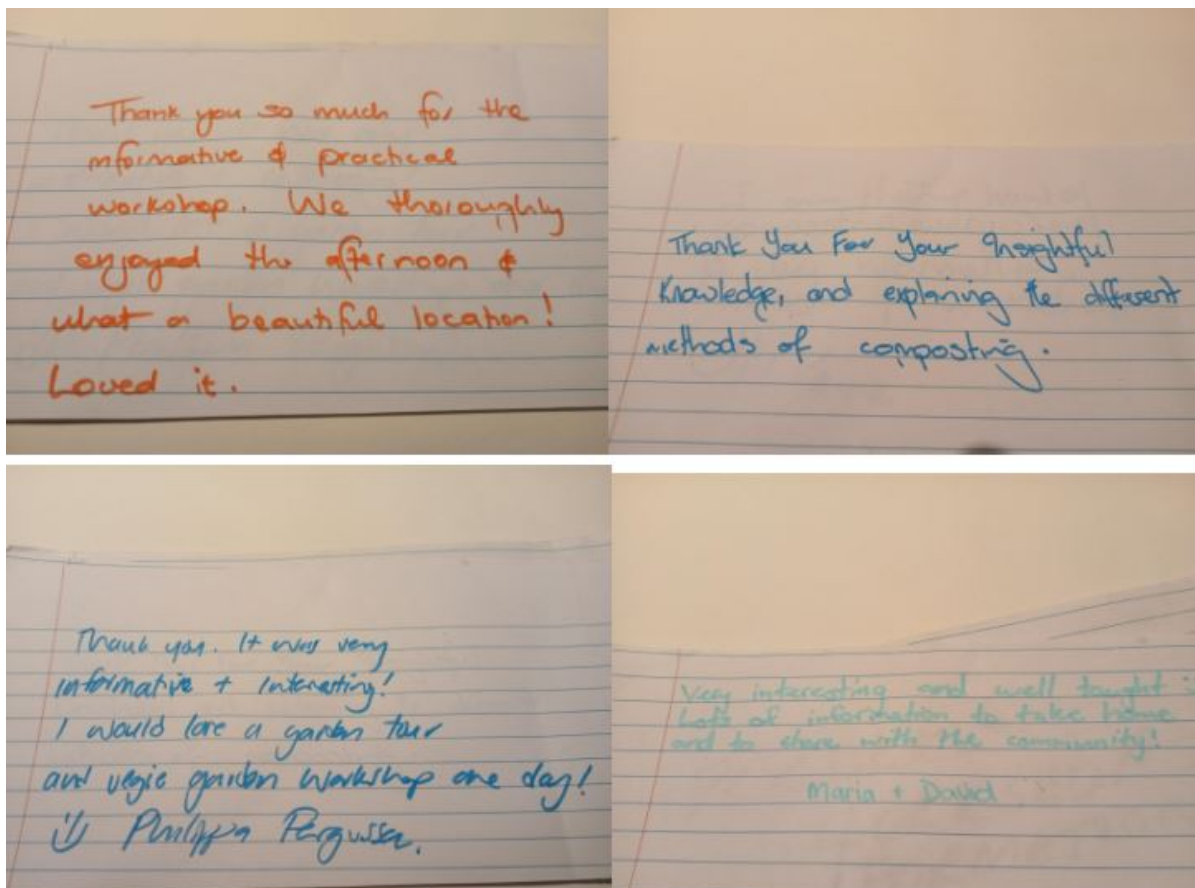 Thank you so much for the
informative & practical
workshop. We thoroughly
enjoyed the afternoon &
what a beautiful location!
Loved it.
Thank You For Your Insightful
Knowledge, and explaining the different
methods of composting.
Thank you. It was very
informative + interesting!
I would love a garden tour
and vegie garden workshop one day!
:) Philippa
Very interesting and well taught :
Lots of information to take home
and to share with the community!
Maria + David